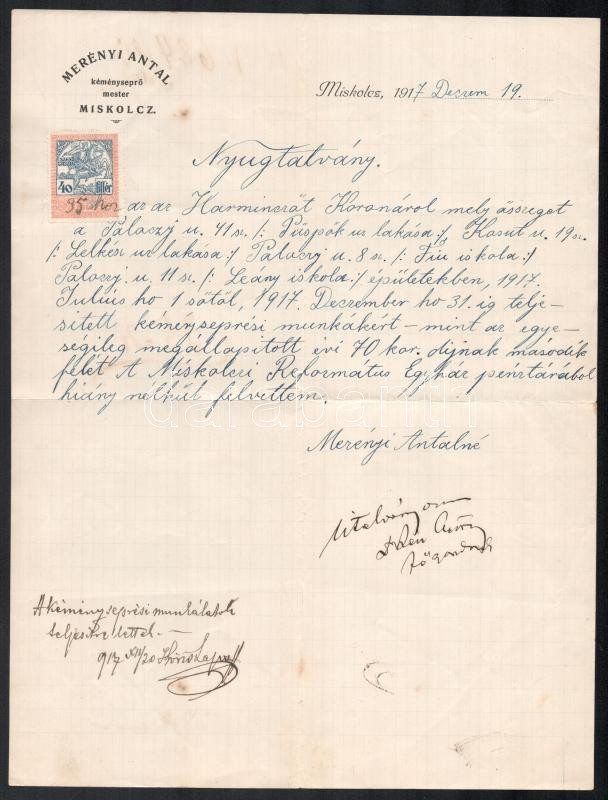 MERÉNYI ANTAL
kéményseprő
mester
MISKOLCZ.
Miskolcz, 1917 Deczem 19.
40 fillér
Nyugtatvány.
35 kor az az Harminczöt Koronárol mely összeget
a Palóczy u. 41 sz. /: Püspök ur lakása :/ Kosut u. 19 sz.
/: Lelkész ur lakása :/ Paloczy u. 8 sz. /: Fiú iskola :/
Paloczy u. 11 sz. /: Leány iskola :/ épületekben, 1917.
Julius ho 1 sőtől, 1917. Deczember ho 31. ig telje-
sitett kéményseprési munkákért – mint az egye-
ségileg megállapitott évi 70 kor. dijnak második
felét A Miskolczi Református Egyház pénztárából
hiány nélkül felvettem.
Merényi Antalné
Utalványozom
főgondnok
A kéményseprési munkálatok
teljesitve lettek. —
917 XII/20